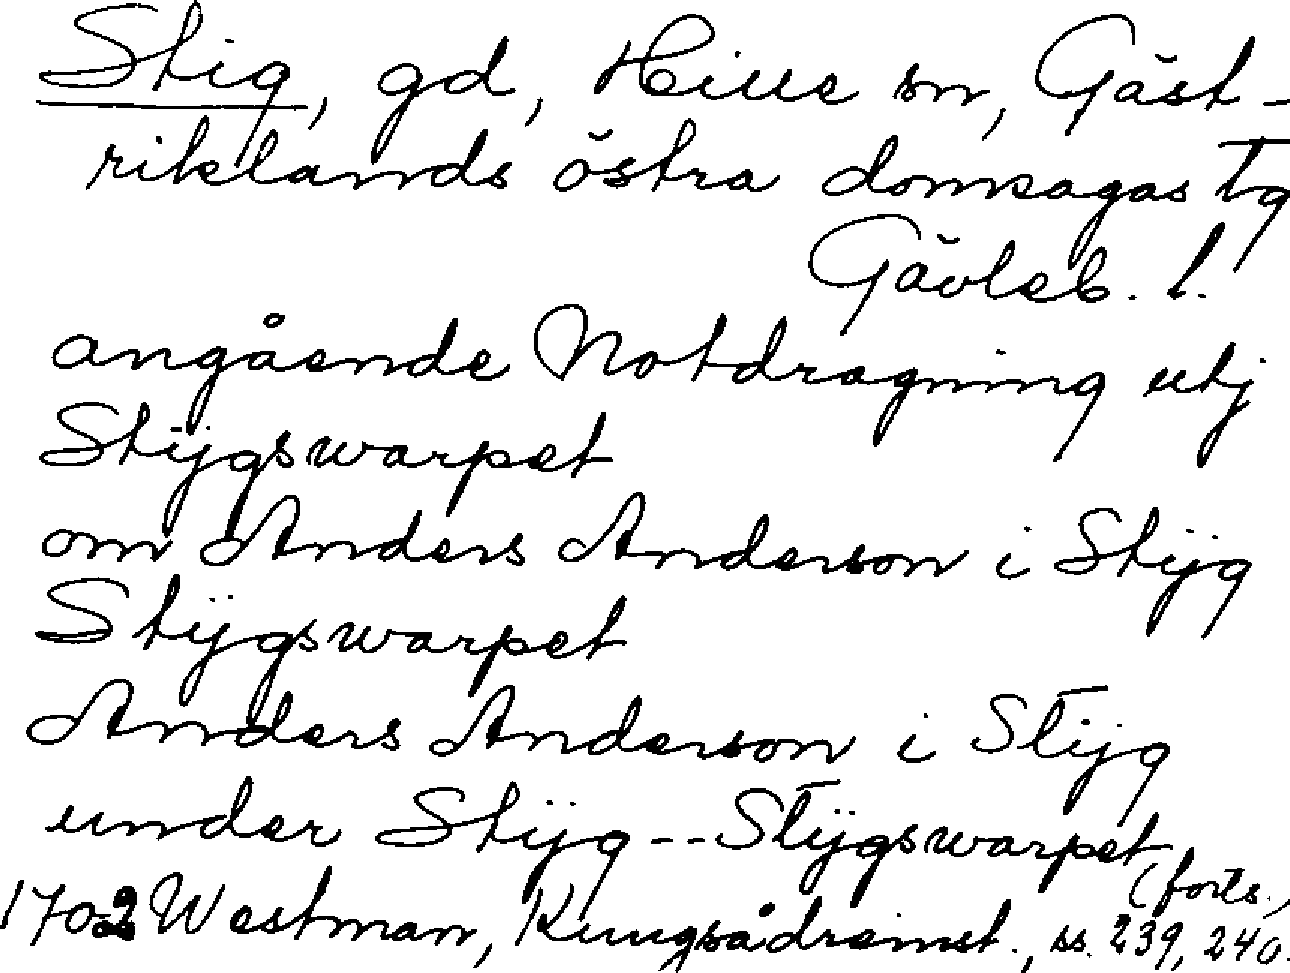 Stig, gd, Hille sn, Gäst-
riklands östra domsagas tg
Gävleb. l.
angående Notdragning utj
Stijgswarpet
om Anders Anderson i Stijg
Stijgswarpet
Anders Anderson i Stijg
under Stijg--Stijgswarpet
(forts.,
1702 Westman, Kungsådreinst., ss. 239, 240.